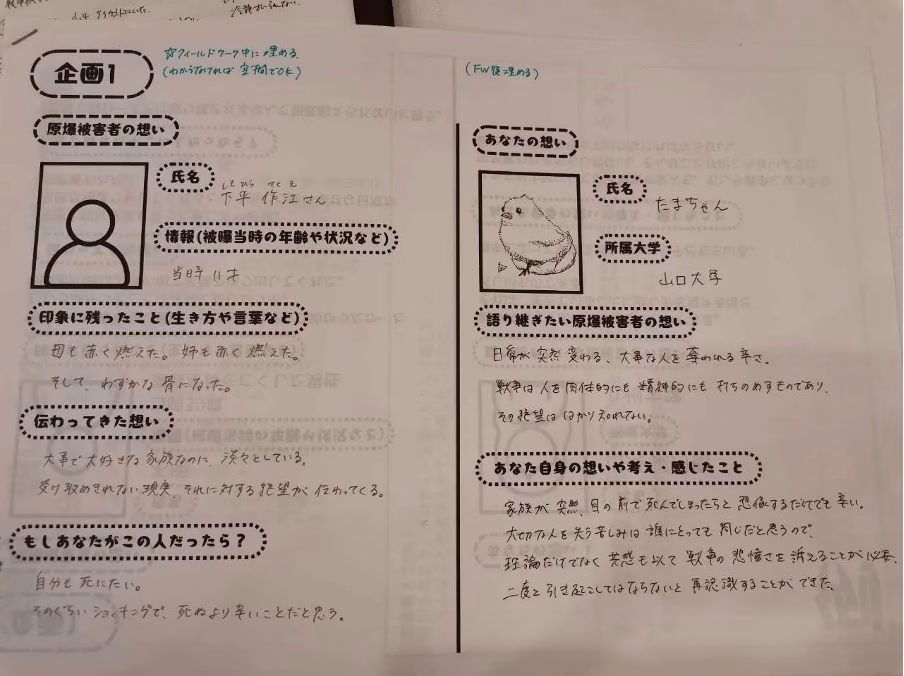 企画1
☆フィールドワーク中に埋める
(わからなければ 空欄でOK)
原爆被害者の想い
氏名
しもひら さくえ
下平 作江さん
情報(被曝当時の年齢や状況など)
当時 11才
印象に残ったこと(生き方や言葉など)
母も赤く燃えた。姉も赤く燃えた。
そして、わずかな骨になった。
伝わってきた想い
大事で大好きな家族なのに、淡々としている。
受け取めきれない現実、それに対する絶望が伝わってくる。
もしあなたがこの人だったら?
自分も死にたい。
そのくらいショッキングで、死ぬより辛いことだと思う。
(FW後埋める)
あなたの想い
氏名
たまちゃん
所属大学
山口大学
語り継ぎたい原爆被害者の想い
日常が突然変わる、大事な人を奪われる辛さ。
戦争は人を肉体的にも精神的にも打ちのめすものであり、
その絶望ははかり知れない。
あなた自身の想いや考え・感じたこと
家族が突然、目の前で死んでしまったらと想像するだけでも辛い。
大切な人を失う苦しみは誰にとっても同じだと思うので、
理論だけでなく共感も以て戦争の悲惨さを訴えることが必要。
二度と引き起こしてはならないと再認識することができた。